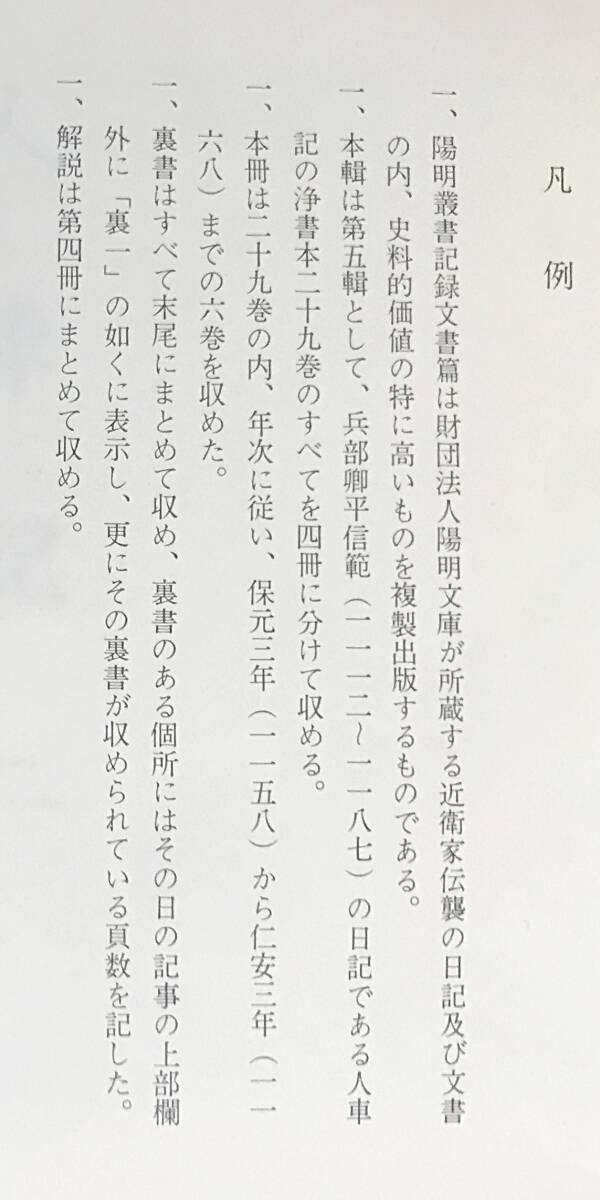 凡例
一、陽明叢書記録文書篇は財団法人陽明文庫が所蔵する近衛家伝襲の日記及び文書
の内、史料的価値の特に高いものを複製出版するものである。
一、本輯は第五輯として、兵部卿平信範（一一一二～一一八七）の日記である人車
記の浄書本二十九巻のすべてを四冊に分けて収める。
一、本冊は二十九巻の内、年次に従い、保元三年（一一五八）から仁安三年（一一
六八）までの六巻を収めた。
一、裏書はすべて末尾にまとめて収め、裏書のある個所にはその日の記事の上部欄
外に「裏一」の如くに表示し、更にその裏書が収められている頁数を記した。
一、解説は第四冊にまとめて収める。